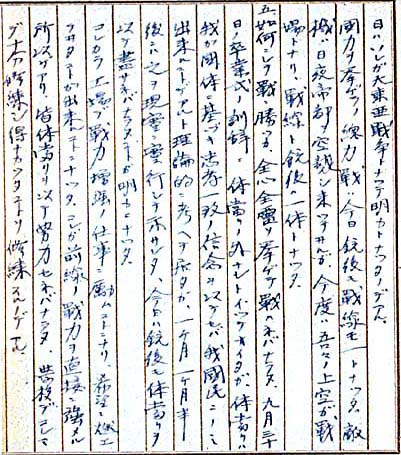 日ハレシガ大東亜戦争トナツテ明カトナツタノデアル
国力ヲ挙ゲテノ総力戦、今日銃後モ戦線モ一トナツタ、敵
機ハ日夜帝都ヲ空襲シ来ツテヰルガ、今度ハ吾々ノ上空ガ戦
場トナリ、戦線ト銃後一体トナツタ、
五、如何ニシテ戦ニ勝ツカ、全心全霊ヲ挙ゲテ戦ハネバナラヌ、九月三十
日ノ卒業式ノ訓辞ニ体当リノ外ナシトイツテオイタガ、体当リハ
我ガ国体ニ基ヅキ忠孝一致ノ信念ヲ以テセバ我国民ニノミ
出来ルコトデアルト理論的ニ考ヘテ居タガ、一ケ月一ケ月半
後ニハ之ヲ現実ニ実行シテ示サレタ、今日ハ銃後モ体当リヲ
以テ尽サネバナラヌコトガ明カニナツタ、
コレカラ工場デ戦力増強ノ仕事ニ励ムコトニナリ、希望ニ燃エ
ヲルコトガ出来ルコトニナツタ、コレガ前線ノ戦力ヲ直接ニ強メル
所以デアリ、皆体当リヲ以テ努力セネバナラヌ、学校デコレマ
デ十分修練シ得ナカツタコトヲ修練スルノデアル